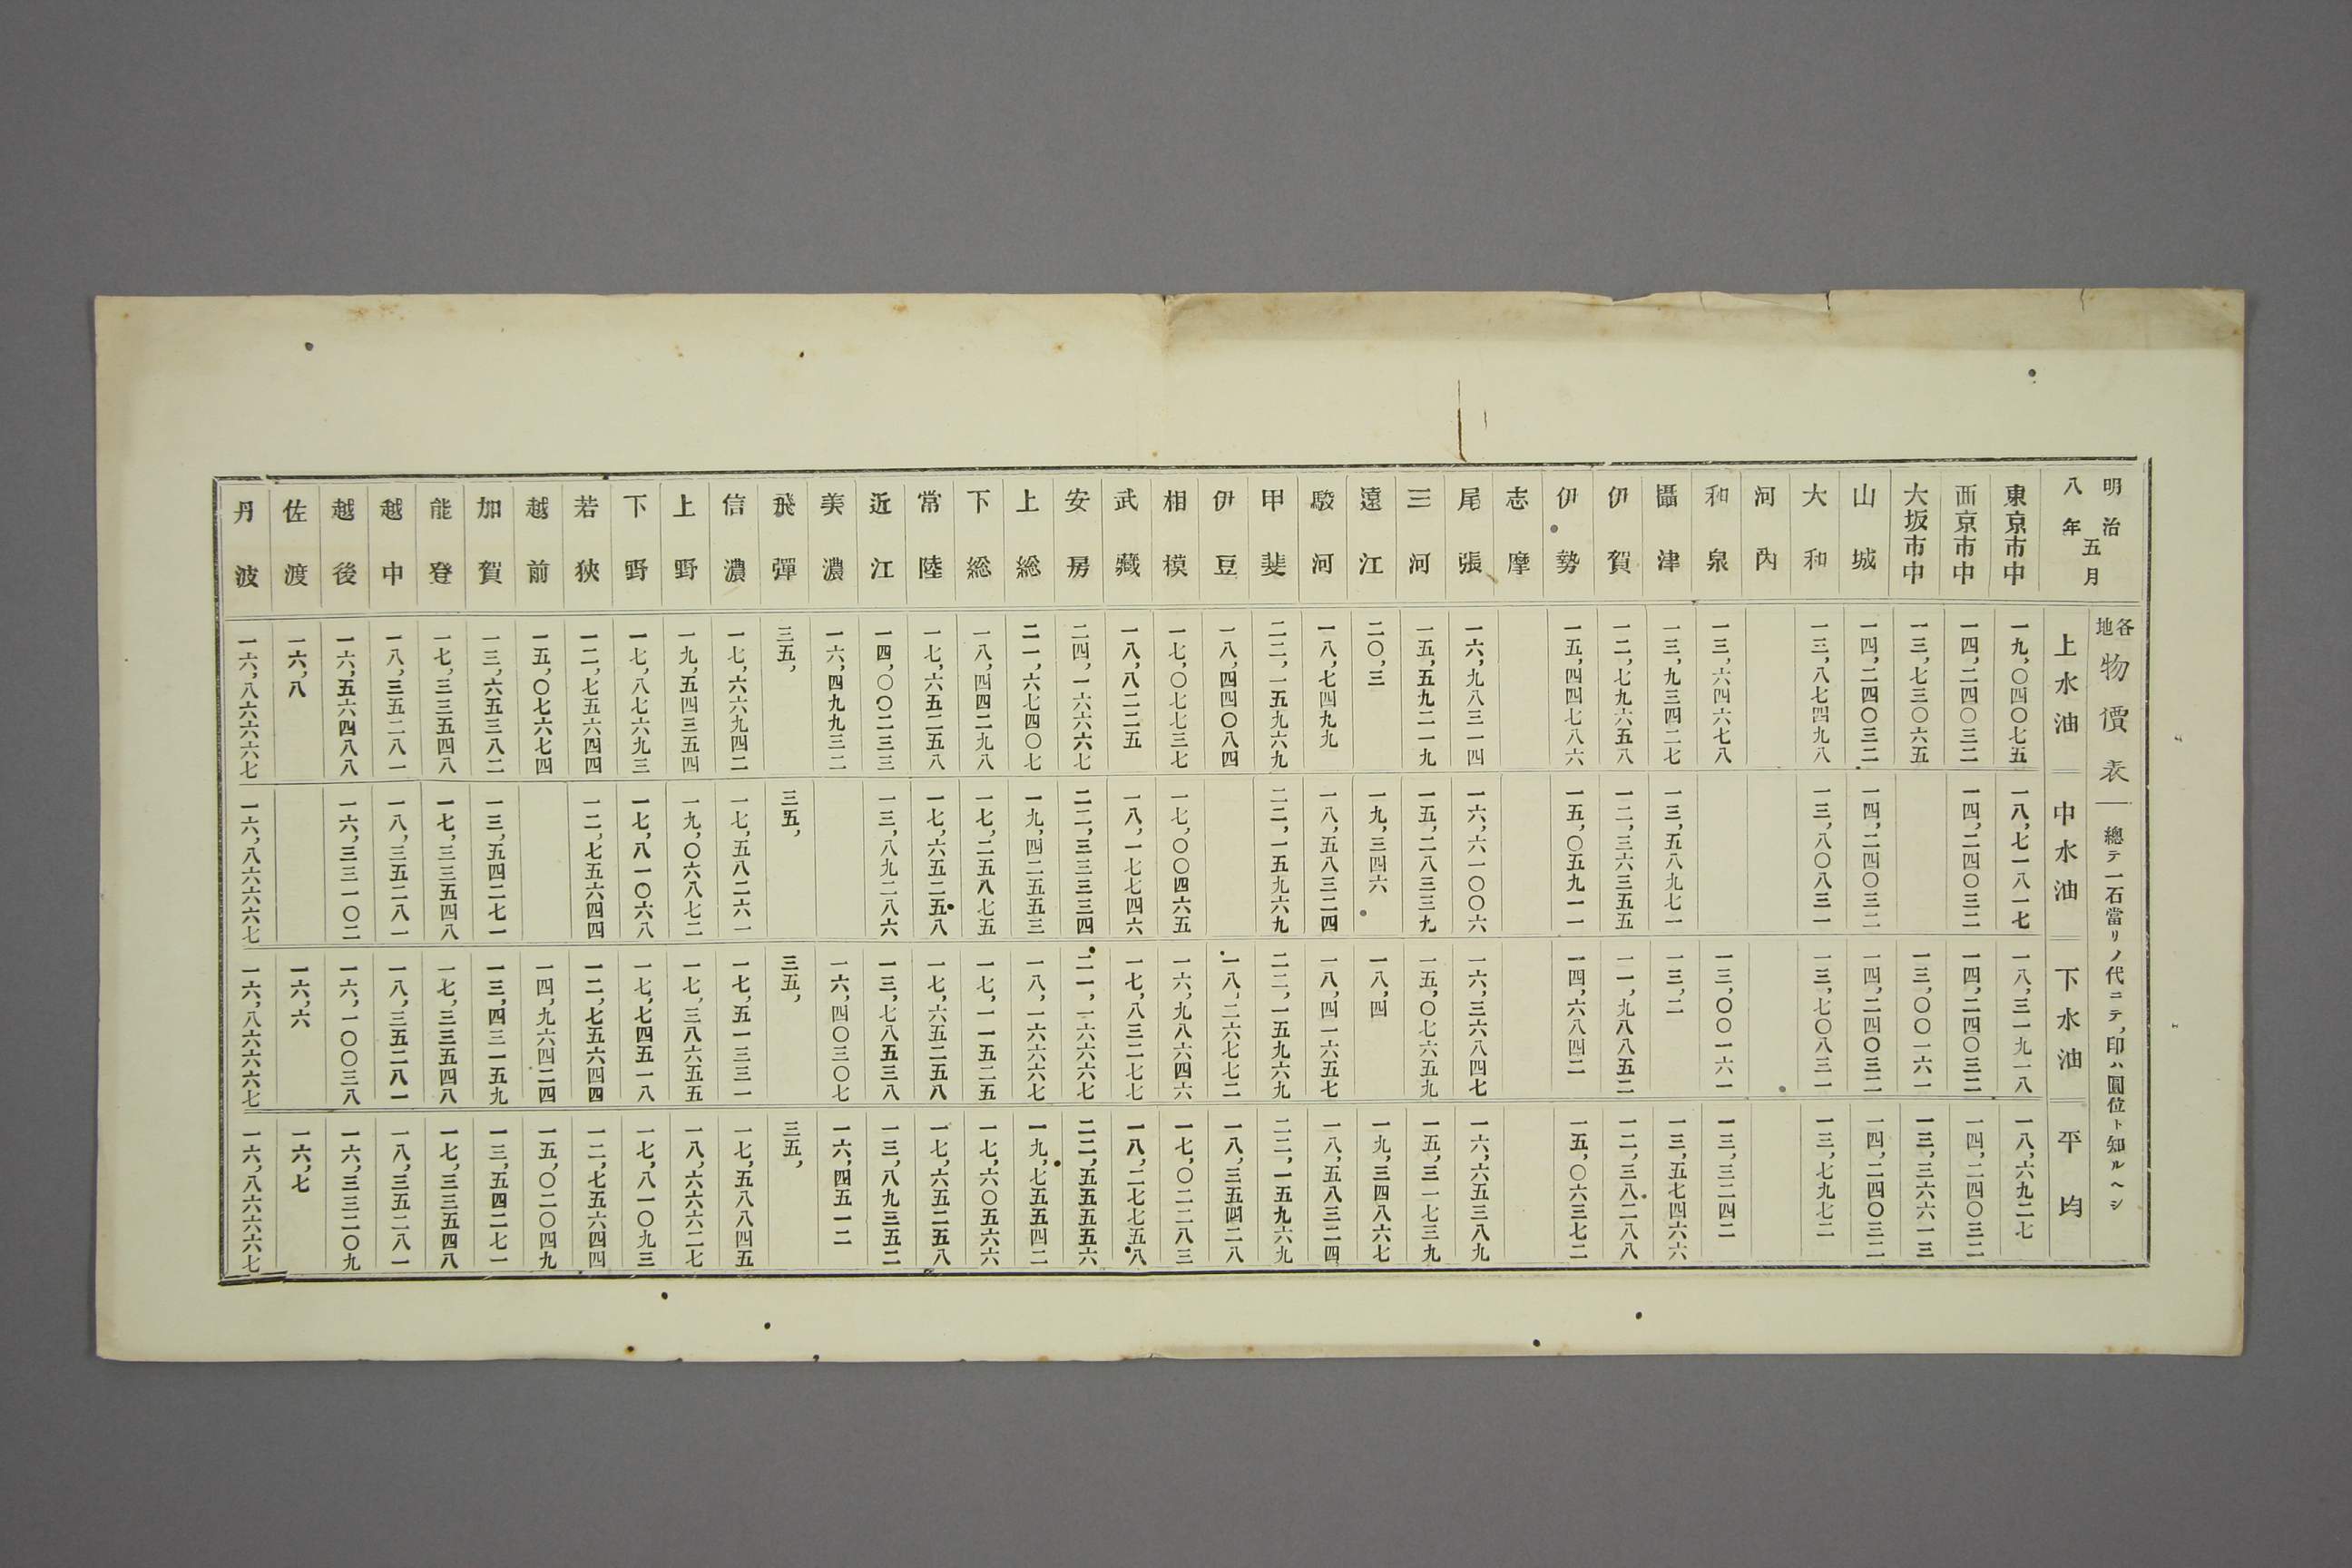 明治八年五月
各地物價表 總テ一石當リノ代ニテ，印ハ圓位ト知ルヘシ
上水油 中水油 下水油 平均
東京市中 一九，〇四〇七五 一八，七一八一七 一八，三一九一八 一八，六九二七
西京市中 一四，二四〇三二 一四，二四〇三二 一四，二四〇三二 一四，二四〇三二
大坂市中 一三，七三〇六五 一三，〇〇一六一 一三，三六六一三
山城 一四，二四〇三二 一四，二四〇三二 一四，二四〇三二 一四，二四〇三二
大和 一三，八七四九八 一三，八〇八三一 一三，七〇八三一 一三，七九七二
河內
和泉 一三，六四六七八 一三，〇〇一六一 一三，三二四二
攝津 一三，九三四二七 一三，五八九七一 一三，二 一三，五七四六六
伊賀 一二，七九六五八 一二，三六三五五 一一，九八八五二 一二，三八二八八
伊勢 一五，四四七八六 一五，〇五九一一 一四，六八四二 一五，〇六三七二
志摩
尾張 一六，九八三一四 一六，六一〇〇六 一六，三六八四七 一六，六五三八九
三河 一五，五九二一九 一五，二八三三九 一五，〇七六五九 一五，三一七三九
遠江 二〇，三 一九，三四六 一八，四 一九，三四八六七
駿河 一八，七四九九 一八，五八三二四 一八，四一六五七 一八，五八三二四
甲斐 二二，一五九六九 二二，一五九六九 二二，一五九六九 二二，一五九六九
伊豆 一八，四四〇八四 一八，二六七七二 一八，三五四二八
相模 一七，〇七七三七 一七，〇〇四六五 一六，九八六四六 一七，〇二二八三
武藏 一八，八二二五 一八，一七七四六 一七，八三二七七 一八，二七七五八
安房 二四，一六六六七 二二，三三三三四 二一，一六六六七 二二，五五五五六
上総 二一，六七四〇七 一九，四二五五三 一八，一六六六七 一九，七五五四二
下総 一八，四四二九八 一七，二五八七五 一七，一一五二五 一七，六〇五六六
常陸 一七，六五二五八 一七，六五二五八 一七，六五二五八 一七，六五二五八
近江 一四，〇〇二三三 一三，八九二八六 一三，七八五三八 一三，八九三五二
美濃 一六，四九九三二 一六，四〇三〇七 一六，四五一二
飛彈 三五， 三五， 三五， 三五，
信濃 一七，六六九四二 一七，五八二六一 一七，五一三三一 一七，五八八四五
上野 一九，五四三五四 一九，〇六八七二 一七，三八六五五 一八，六六六二七
下野 一七，八七六九三 一七，八一〇六八 一七，七四五一八 一七，八一〇九三
若狹 一二，七五六四四 一二，七五六四四 一二，七五六四四 一二，七五六四四
越前 一五，〇七六七四 一四，九六四二四 一五，〇二〇四九
加賀 一三，六五三八二 一三，五四二七一 一三，四三一五九 一三，五四二七一
能登 一七，三三五四八 一七，三三五四八 一七，三三五四八 一七，三三五四八
越中 一八，三五二八一 一八，三五二八一 一八，三五二八一 一八，三五二八一
越後 一六，五六四八八 一六，三三一〇二 一六，一〇〇三八 一六，三三二〇九
佐渡 一六，八 一六，六 一六，七
丹波 一六，八六六六七 一六，八六六六七 一六，八六六六七 一六，八六六六七